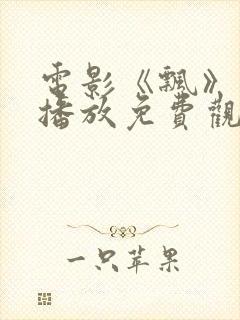 電影《飄》
播放免費觀
一只苹果